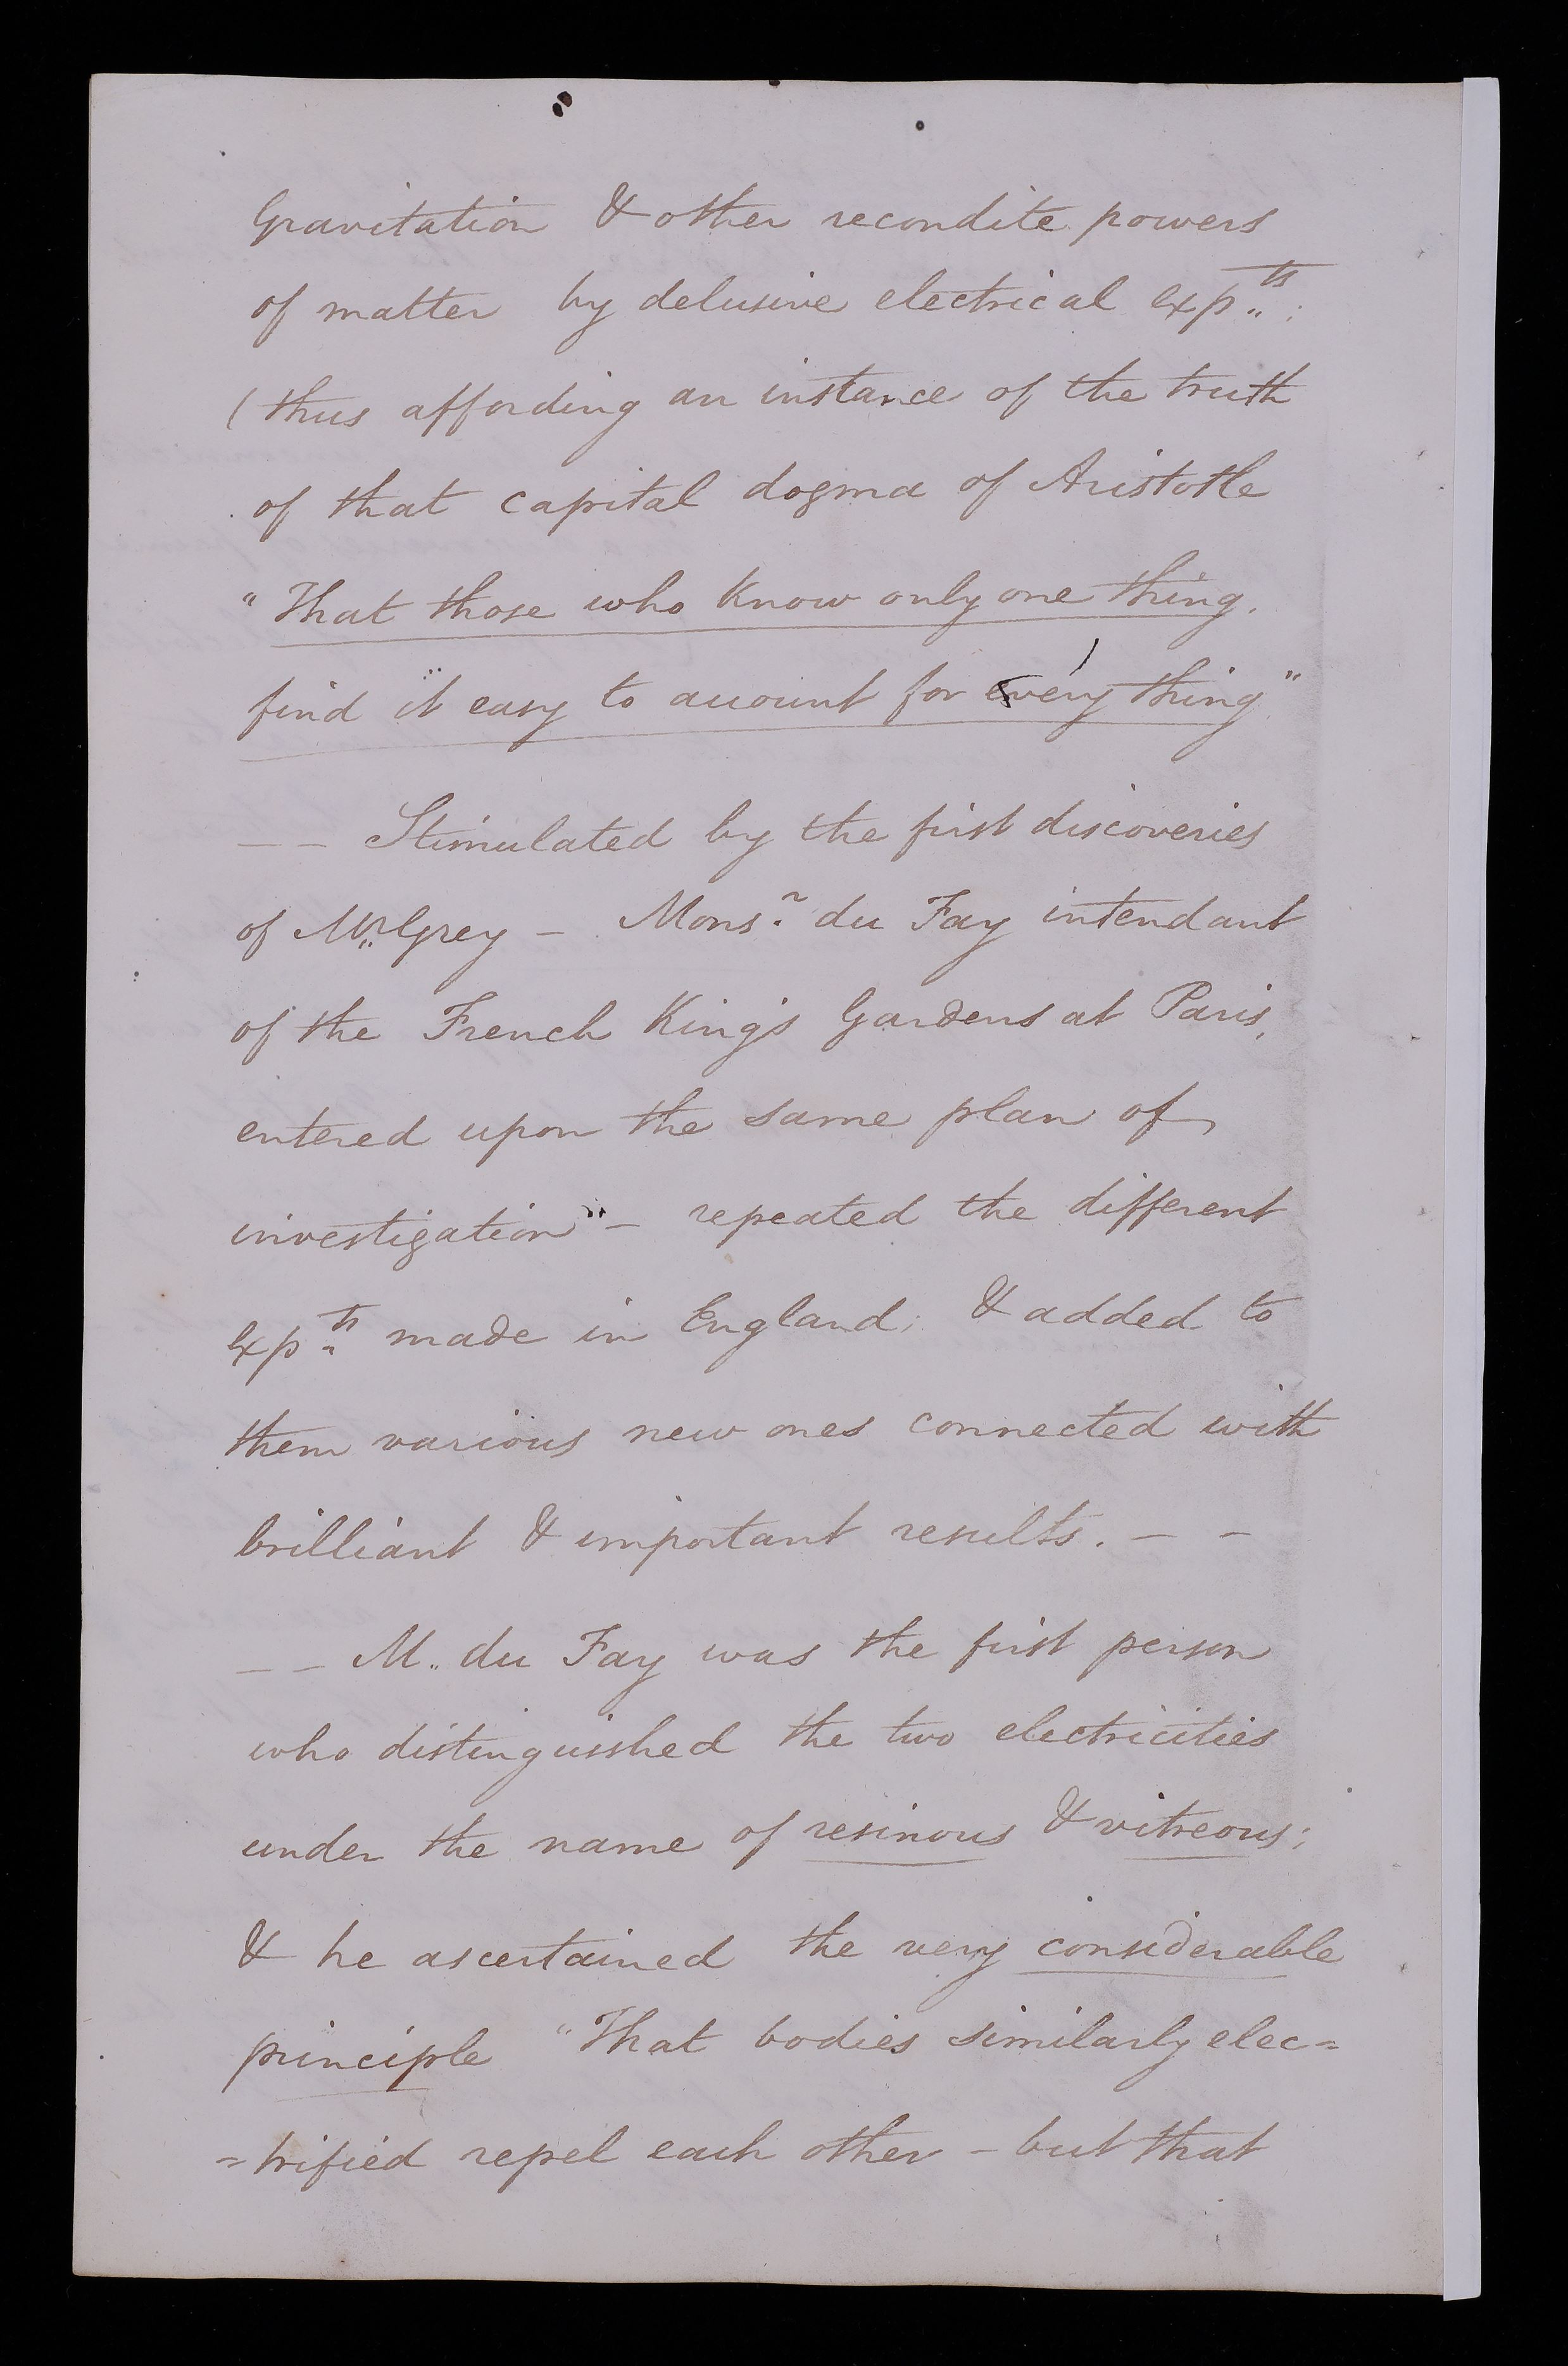 Gravitation & other recondite powers
of matter by delusive electrical exp.ts:
(thus affording an instance of the truth
of that capital dogma of Aristotle
"That those who know only one thing,
find it easy to account for every thing"
-- Stimulated by the first discoveries
of Mr. Grey - Monsr. du Fay intendant
of the French King's Gardens at Paris,
entered upon the same plan of
investigation - repeated the different
exp.ts made in England; & added to
them various new ones connected with
brilliant & important results. - -
-- M. du Fay was the first person
who distinguished the two electricities
under the name of resinous & vitreous;
& he ascertained the very considerable
principle "That bodies similarly elec=
=trified repel each other - but that